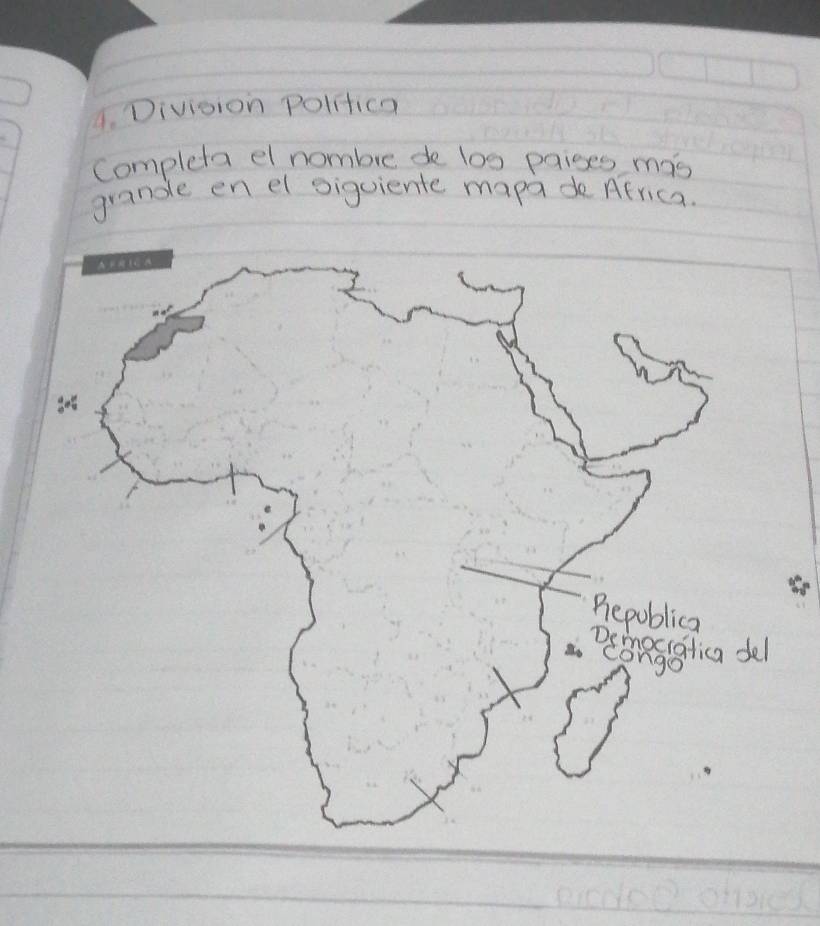 4. Division Política
Completa el nombre de los paises más
grande en el siguiente mapa de Africa.
AFRICA
Republica
Democrática del
Congo